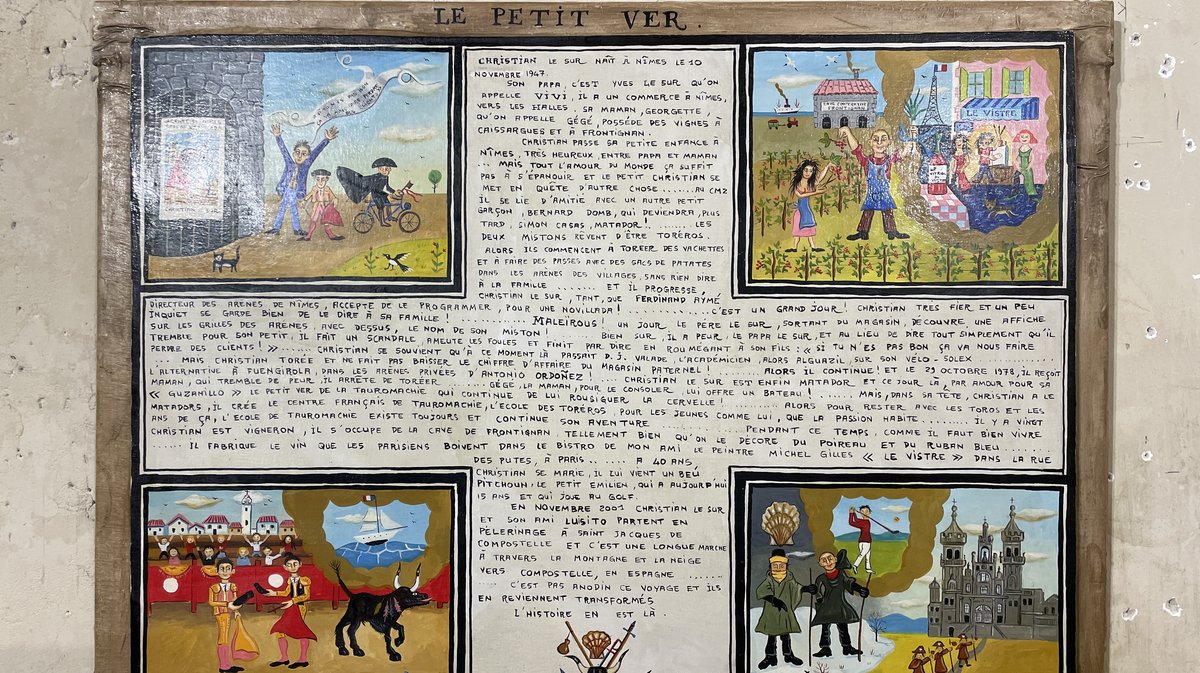 LE PETIT VER.
CHRISTIAN LE SUR NAÎT À NÎMES LE 10
NOVEMBRE 1947.
SON PAPA, C'EST YVES LE SUR QU'ON
APPELLE VIVI, IL A UN COMMERCE À NÎMES,
VERS LES HALLES. SA MAMAN, GEORGETTE,
QU'ON APPELLE GÉGÉ, POSSÈDE DES VIGNES À
CAISSARGUES ET À FRONTIGNAN.
CHRISTIAN PASSE SA PETITE ENFANCE À
NÎMES, TRÈS HEUREUX, ENTRE PAPA ET MAMAN
... MAIS, TOUT L'AMOUR DU MONDE ÇA SUFFIT
PAS À S'ÉPANOUIR ET LE PETIT CHRISTIAN SE
MET EN QUÊTE D'AUTRE CHOSE ....... AU CM2
IL SE LIE D'AMITIÉ AVEC UN AUTRE PETIT
GARÇON, BERNARD DOMB, QUI DEVIENDRA, PLUS
TARD, SIMON CASAS, MATADOR! ....... LES
DEUX MISTONS RÊVENT D'ÊTRE TORÉROS.
ALORS ILS COMMENCENT À TORÉER DES VACHETTES
ET À FAIRE DES PASSES AVEC DES SACS DE PATATES
DANS LES ARÈNES DES VILLAGES, SANS RIEN DIRE
À LA FAMILLE ....... ET IL PROGRESSE
CHRISTIAN LE SUR, TANT, QUE FERDINAND AYMÉ
DIRECTEUR DES ARÈNES DE NÎMES, ACCEPTE DE LE PROGRAMMER, POUR UNE NOVILLADA! ............. C'EST UN GRAND JOUR! CHRISTIAN TRÈS FIER ET UN PEU
INQUIET SE GARDE BIEN DE LE DIRE À SA FAMILLE! ............. MALEÏROUS! UN JOUR, LE PÈRE LE SUR, SORTANT DU MAGASIN, DÉCOUVRE UNE AFFICHE
SUR LES GRILLES DES ARÈNES, AVEC DESSUS, LE NOM DE SON MISTON! ............. BIEN SUR, IL A PEUR, LE PAPA LE SUR, ET AU LIEU DE DIRE TOUT SIMPLEMENT QU'IL
TREMBLE POUR SON PETIT, IL FAIT UN SCANDALE, AMEUTE LES FOULES ET FINIT PAR DIRE EN ROUMÉGANT À SON FILS: « SI TU N'ES PAS BON ÇA VA NOUS FAIRE
PERDRE DES CLIENTS! » ....... CHRISTIAN SE SOUVIENT QU'À CE MOMENT LÀ PASSAIT D.J. VALADE L'ACADÉMICIEN, ALORS ALGUAZIL, SUR SON VÉLO-SOLEX .......
MAIS CHRISTIAN TORÉE ET NE FAIT PAS BAISSER LE CHIFFRE D'AFFAIRE DU MAGASIN PATERNEL! ............. ALORS IL CONTINUE! ET LE 29 OCTOBRE 1978, IL REÇOIT
L'ALTERNATIVE À FUENGIROLA, DANS LES ARÈNES PRIVÉES D'ANTONIO ORDOÑEZ! ....... CHRISTIAN LE SUR EST ENFIN MATADOR ET CE JOUR LÀ, PAR AMOUR POUR SA
MAMAN, QUI TREMBLE DE PEUR, IL ARRÊTE DE TORÉER ....... GÉGÉ, LA MAMAN, POUR LE CONSOLER, LUI OFFRE UN BATEAU! ....... MAIS, DANS SA TÊTE, CHRISTIAN A LE
« GUZANILLO » LE PETIT VER DE LA TAUROMACHIE QUI CONTINUE DE LUI ROUSIGUER LA CERVELLE! ............. ALORS POUR RESTER AVEC LES TOROS ET LES
MATADORS, IL CRÉE LE CENTRE FRANÇAIS DE TAUROMACHIE, L'ÉCOLE DES TORÉROS, POUR LES JEUNES COMME LUI, QUE LA PASSION HABITE ....... IL Y A VINGT
ANS DE ÇA, L'ÉCOLE DE TAUROMACHIE EXISTE TOUJOURS ET CONTINUE SON AVENTURE ............. PENDANT CE TEMPS, COMME IL FAUT BIEN VIVRE
CHRISTIAN EST VIGNERON, IL S'OCCUPE DE LA CAVE DE FRONTIGNAN, TELLEMENT BIEN QU'ON LE DÉCORE DU POIREAU ET DU RUBAN BLEU .......
....... IL FABRIQUE LE VIN QUE LES PARISIENS BOIVENT DANS LE BISTRO DE MON AMI LE PEINTRE MICHEL GILLES « LE VISTRE » DANS LA RUE
DES PUTES, À PARIS ....... A 40 ANS,
CHRISTIAN SE MARIE, IL LUI VIENT UN BEÚ
PITCHOUN, LE PETIT EMILIEN, QUI A AUJOURD'HUI
15 ANS ET QUI JOUE AU GOLF.
EN NOVEMBRE 2001 CHRISTIAN LE SUR
ET SON AMI LUISITO PARTENT EN
PÈLERINAGE À SAINT JACQUES DE
COMPOSTELLE ET C'EST UNE LONGUE MARCHE
À TRAVERS LA MONTAGNE ET LA NEIGE
VERS COMPOSTELLE, EN ESPAGNE .......
C'EST PAS ANODIN CE VOYAGE ET ILS
EN REVIENNENT TRANSFORMÉS
L'HISTOIRE EN EST LÀ.
LE VISTRE